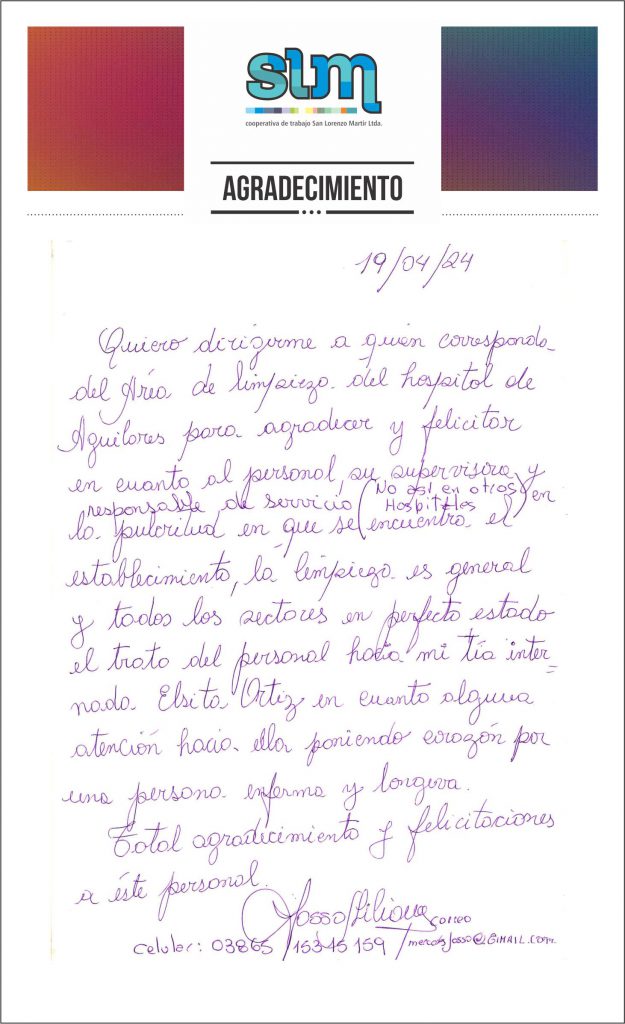 slm
cooperativa de trabajo San Lorenzo Martir Ltda.
AGRADECIMIENTO
19/04/24
Quiero dirigirme a quién corresponda
del Área de limpieza del hospital de
Aguilares para agradecer y felicitar
en cuanto al personal, su supervisora y
responsable de servicio (No así en otros Hospitales) en
la pulcritud en que se encuentra el
establecimiento, la limpieza es general
y todos los sectores en perfecto estado
el trato del personal hacia mi tía inter=
nada Elsita Ortiz en cuanto alguna
atención hacia ella poniendo corazón por
una persona enferma y longeva.
Total agradecimiento y felicitaciones
a éste personal.
Liliana
correo
celular: 03865 / 153 15 159 / @GIMAIL.com